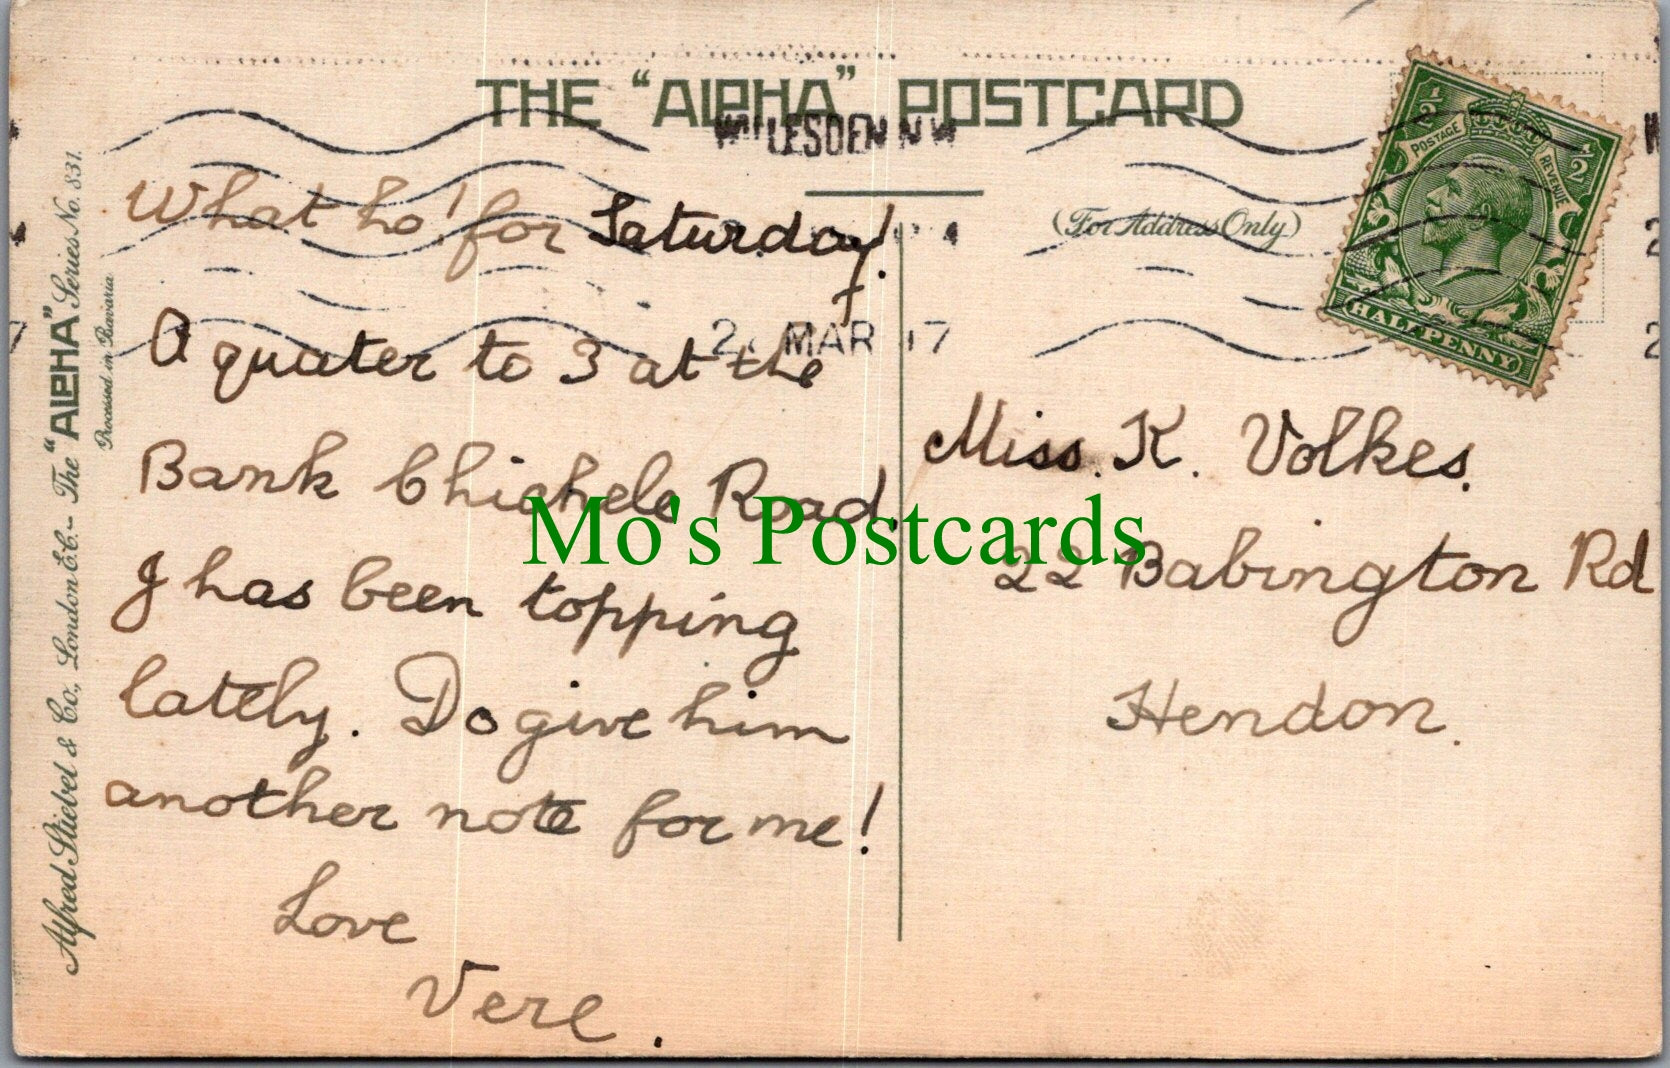 THE "ALPHA" POSTCARD
WILLESDEN NW
(For Address Only)
POSTAGE REVENUE
½ ½
HALFPENNY
MAR 17
What ho! for Saturday!
A quater to 3 at the
Bank Chichele Road.
J has been topping
lately. Do give him
another note for me!
Love
Vere.
Miss. K. Volkes.
22 Babington Rd
Hendon.
Mo's Postcards
Alfred Stiebel & Co., London E.C. - The "ALPHA" Series No. 831.
Processed in Bavaria